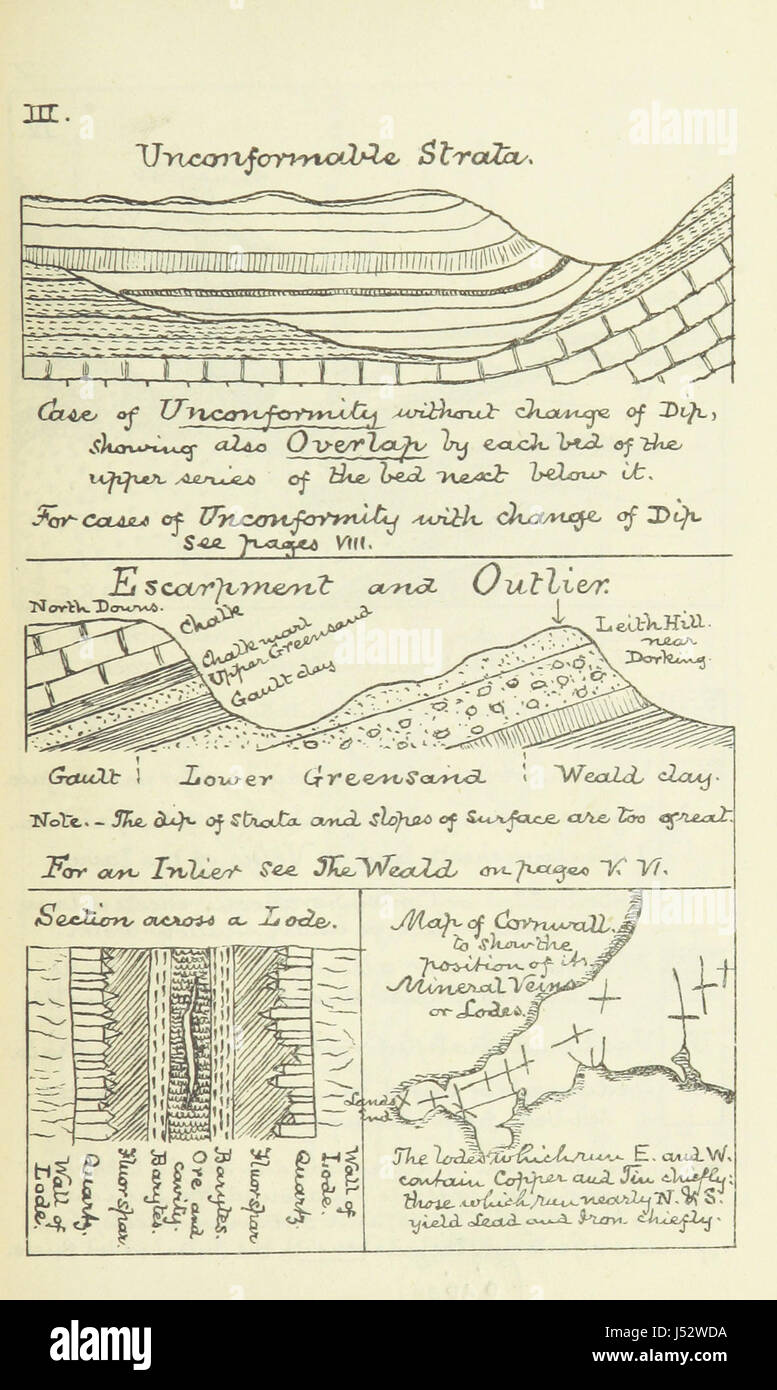 III.
Unconformable Strata.
Case of Unconformity without change of Dip,
showing also Overlap by each bed of the
upper series of the bed next below it.
For cases of Unconformity with change of Dip
see pages VIII.
Escarpment and Outlier.
North Downs.
Chalk
Chalk marl
Upper Greensand
Gault clay
Leith Hill.
near
Dorking.
Gault Lower Greensand Weald clay.
Note. - The dip of strata and slopes of surface are too great.
For an Inlier see The Weald on pages V. VI.
Section across a Lode.
Wall of
Lode.
Quartz.
Fluorspar.
Barytes.
Ore and
cavity.
Barytes.
Fluorspar
Quartz.
Wall of
Lode.
Map of Cornwall.
to show the
position of its
Mineral Veins
or Lodes.
Lands
End
The lodes which run E. and W.
contain Copper and Tin chiefly:
those which run nearly N. & S.
yield Lead and Iron chiefly.
alamy
a
alamy stock photo
J52WDA
www.alamy.com